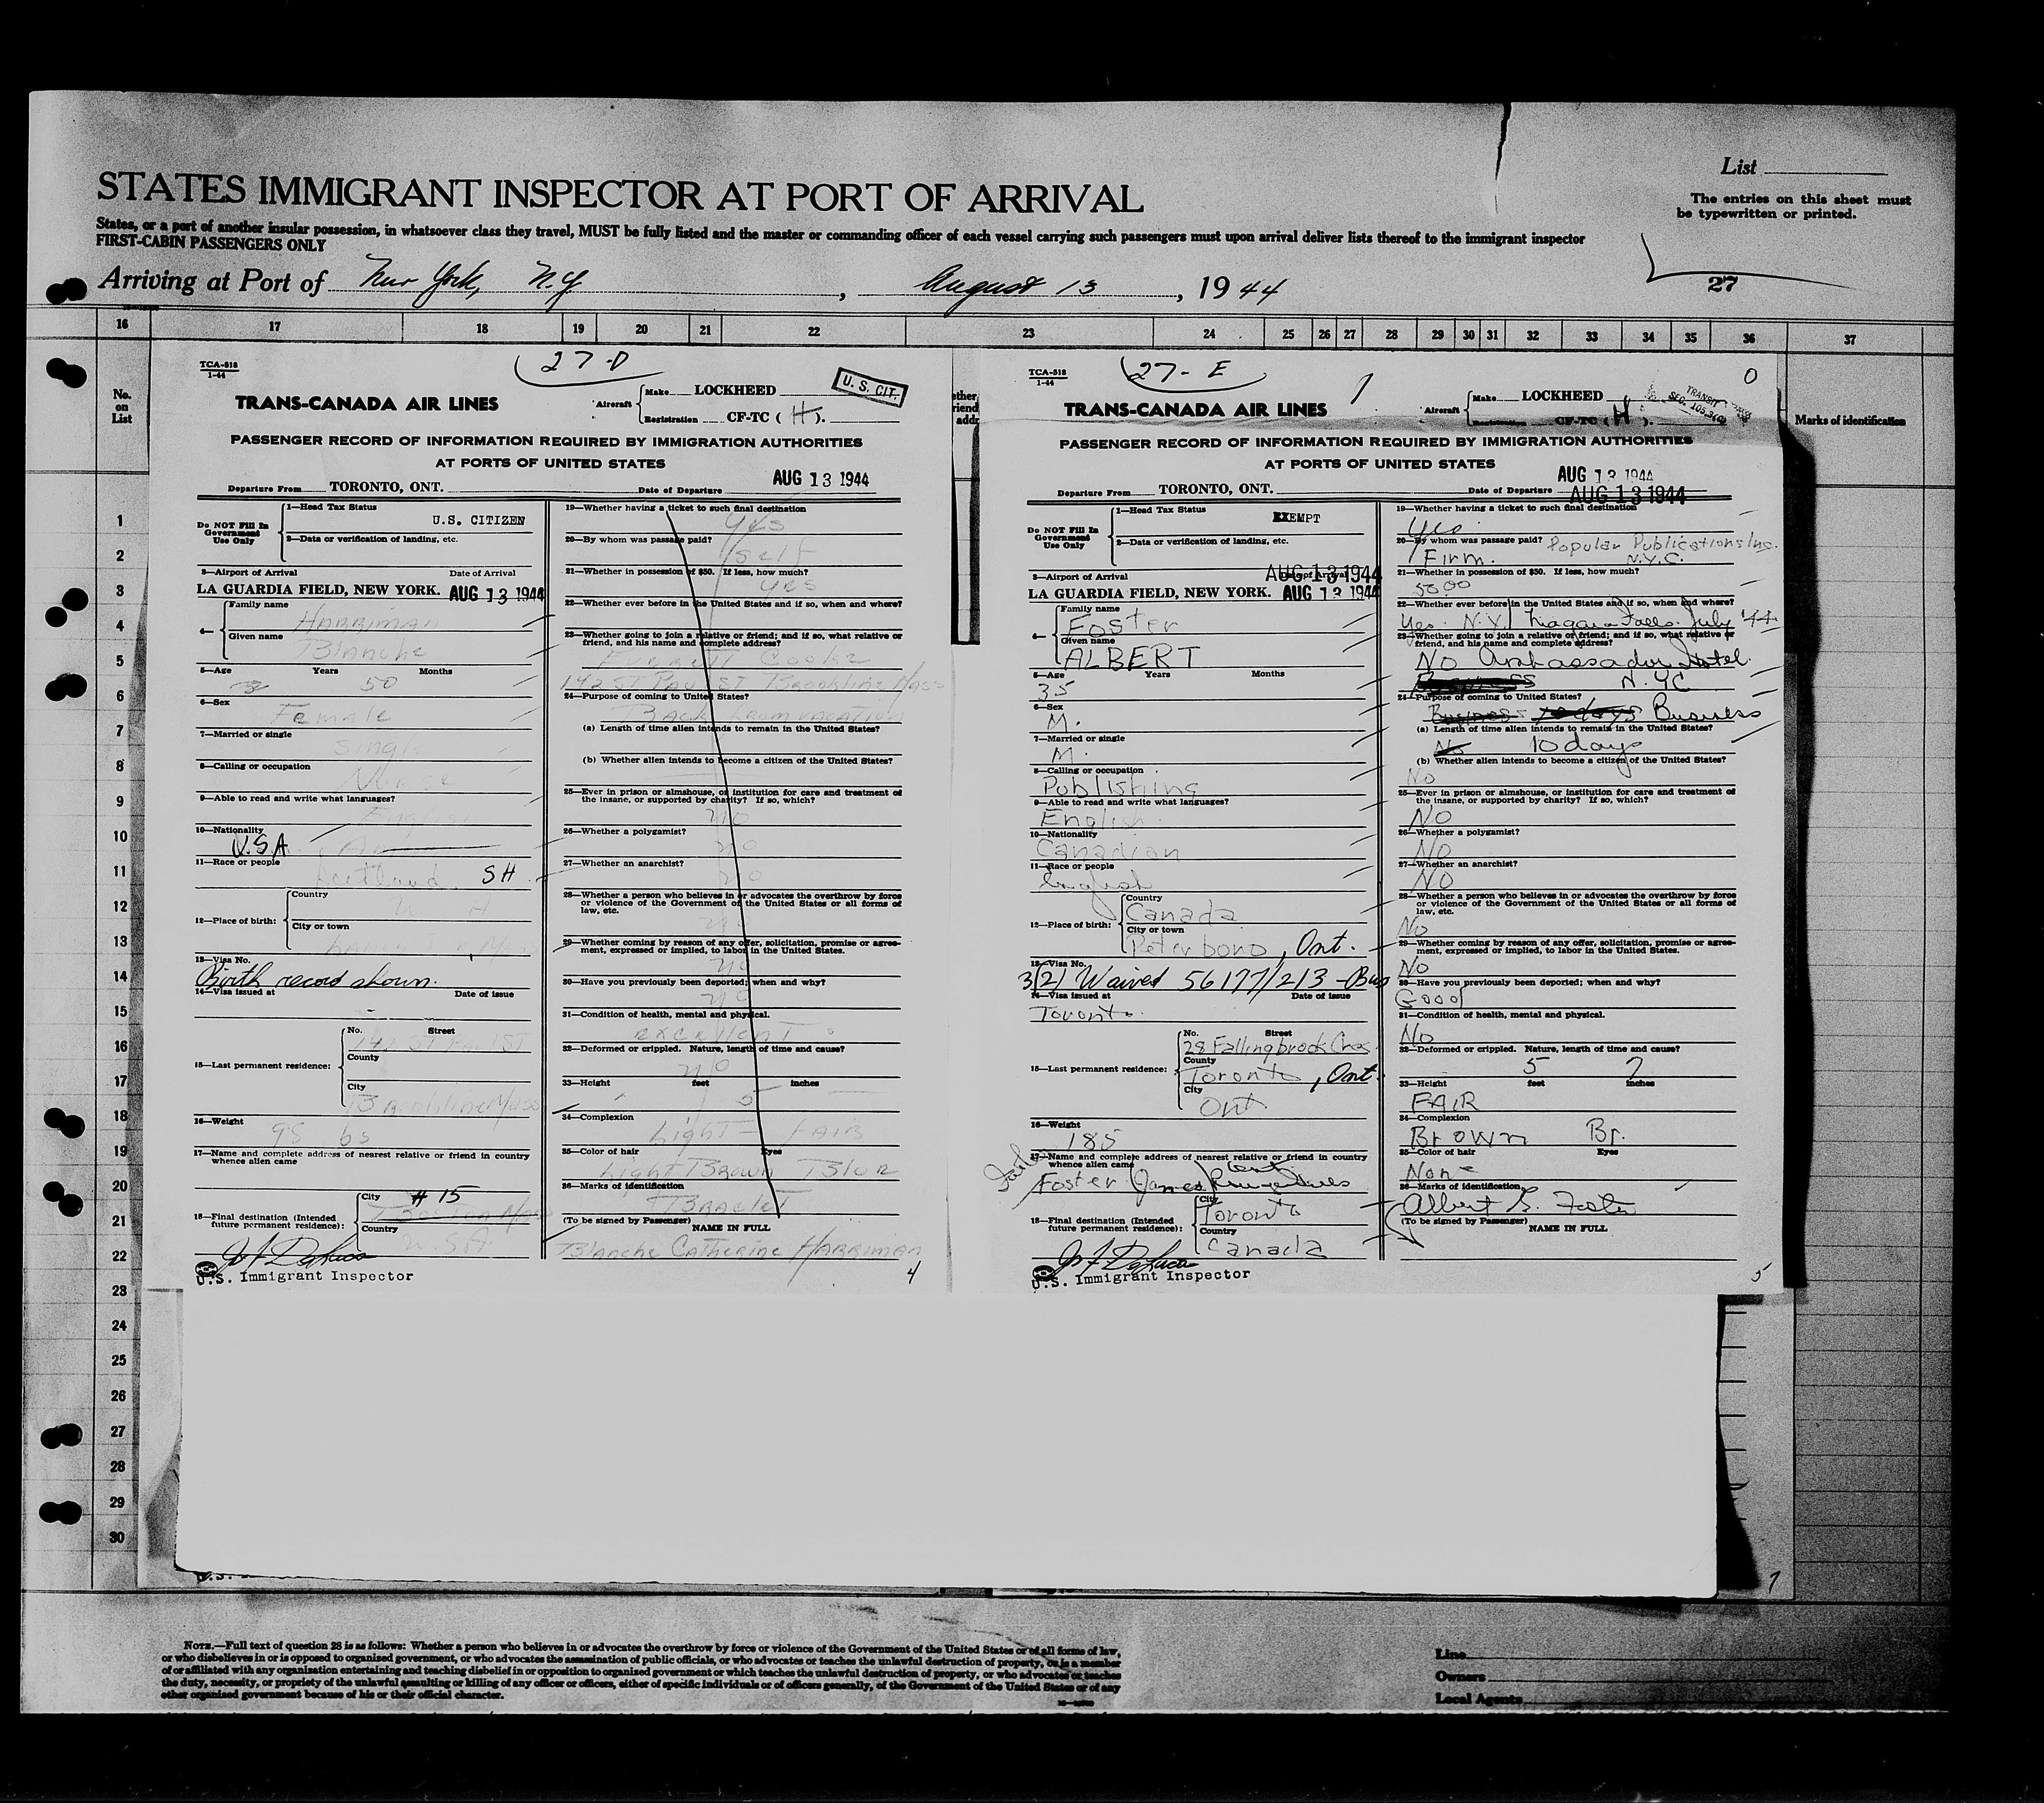 List
STATES IMMIGRANT INSPECTOR AT PORT OF ARRIVAL
The entries on this sheet must
be typewritten or printed.
States, or a port of another insular possession, in whatsoever class they travel, MUST be fully listed and the master or commanding officer of each vessel carrying such passengers must upon arrival deliver lists thereof to the immigrant inspector
FIRST-CABIN PASSENGERS ONLY
Arriving at Port of New York, N.Y. , August 13 , 19 44
27
16 17 18 19 20 21 22 23 24 25 26 27 28 29 30 31 32 33 34 35 36 37
No.
on
List
Marks of identification
1
2
3
4
5
6
7
8
9
10
11
12
13
14
15
16
17
18
19
20
21
22
23
24
25
26
27
28
29
30
TCA-518
1-44
27-D
U. S. CIT.
TRANS-CANADA AIR LINES
Aircraft Make LOCKHEED
Registration CF-TC ( H ).
PASSENGER RECORD OF INFORMATION REQUIRED BY IMMIGRATION AUTHORITIES
AT PORTS OF UNITED STATES
Departure From TORONTO, ONT. Date of Departure AUG 13 1944
Do NOT Fill In
Government
Use Only
1—Head Tax Status
U.S. CITIZEN
2—Data or verification of landing, etc.
3—Airport of Arrival Date of Arrival
LA GUARDIA FIELD, NEW YORK. AUG 13 1944
4—
Family name
HARRIMAN
Given name
Blanche
5—Age Years Months
50
6—Sex
Female
7—Married or single
Singl
8—Calling or occupation
Nurse
9—Able to read and write what languages?
English
10—Nationality
U.S.A.
11—Race or people
Scotland SH
12—Place of birth:
Country
City or town
13—Visa No.
Birth record shown.
14—Visa issued at Date of issue
15—Last permanent residence:
No. Street
142 ST Paul ST
County
City
Brookline Mass
16—Weight
98 lbs
17—Name and complete address of nearest relative or friend in country
whence alien came
18—Final destination (Intended
future permanent residence):
City # 15
Boston Mass
Country
U.S.A.
U.S. Immigrant Inspector
19—Whether having a ticket to such final destination
Yes
20—By whom was passage paid?
Self
21—Whether in possession of $50. If less, how much?
Yes
22—Whether ever before in the United States and if so, when and where?
23—Whether going to join a relative or friend; and if so, what relative or
friend, and his name and complete address?
Everett Cooke
142 ST Paul ST Brookline Mass
24—Purpose of coming to United States?
Back from vacation
(a) Length of time alien intends to remain in the United States?
(b) Whether alien intends to become a citizen of the United States?
25—Ever in prison or almshouse, or institution for care and treatment of
the insane, or supported by charity? If so, which?
no
26—Whether a polygamist?
no
27—Whether an anarchist?
no
28—Whether a person who believes in or advocates the overthrow by force
or violence of the Government of the United States or all forms of
law, etc.
no
29—Whether coming by reason of any offer, solicitation, promise or agree-
ment, expressed or implied, to labor in the United States.
no
30—Have you previously been deported; when and why?
no
31—Condition of health, mental and physical.
excellent
32—Deformed or crippled. Nature, length of time and cause?
no
33—Height feet inches
5
34—Complexion
Light - FAIR
35—Color of hair Eyes
Light Brown Blue
36—Marks of identification
Bracelet
(To be signed by Passenger) NAME IN FULL
Blanche Catherine HARRIMAN
4
TCA-518
1-44
27-E
0
TRANS-CANADA AIR LINES
Aircraft Make LOCKHEED
Registration CF-TC ( H ).
TRANSIT
PASSENGER RECORD OF INFORMATION REQUIRED BY IMMIGRATION AUTHORITIES
AT PORTS OF UNITED STATES
AUG 13 1944
Departure From TORONTO, ONT. Date of Departure AUG 13 1944
Do NOT Fill In
Government
Use Only
1—Head Tax Status
EXEMPT
2—Data or verification of landing, etc.
3—Airport of Arrival Date of Arrival AUG 13 1944
LA GUARDIA FIELD, NEW YORK. AUG 13 1944
4—
Family name
Foster
Given name
ALBERT
5—Age Years Months
35
6—Sex
M.
7—Married or single
M.
8—Calling or occupation
Publishing
9—Able to read and write what languages?
English
10—Nationality
Canadian
11—Race or people
English
12—Place of birth:
Country
Canada
City or town
Peterboro, Ont.
13—Visa No.
3(2) Waived 56177/213 - Bus
14—Visa issued at Date of issue
Toronto
15—Last permanent residence:
No. Street
28 Fallingbrook Cres.
County
Toronto, Ont.
City
Ont.
16—Weight
185
17—Name and complete address of nearest relative or friend in country
whence alien came
Foster James
18—Final destination (Intended
future permanent residence):
City
Toronto
Country
Canada
U.S. Immigrant Inspector
19—Whether having a ticket to such final destination
Yes
20—By whom was passage paid? Popular Publications Inc.
Firm. N.Y.C.
21—Whether in possession of $50. If less, how much?
50.00
22—Whether ever before in the United States and if so, when and where?
Yes. N.Y. Niagara Falls. July 44.
23—Whether going to join a relative or friend; and if so, what relative or
friend, and his name and complete address?
No Ambassador Hotel.
N.YC
24—Purpose of coming to United States?
Business 10 days Business
(a) Length of time alien intends to remain in the United States?
No 10 days
(b) Whether alien intends to become a citizen of the United States?
No
25—Ever in prison or almshouse, or institution for care and treatment of
the insane, or supported by charity? If so, which?
No
26—Whether a polygamist?
No
27—Whether an anarchist?
No
28—Whether a person who believes in or advocates the overthrow by force
or violence of the Government of the United States or all forms of
law, etc.
No
29—Whether coming by reason of any offer, solicitation, promise or agree-
ment, expressed or implied, to labor in the United States.
No
30—Have you previously been deported; when and why?
Good
31—Condition of health, mental and physical.
No
32—Deformed or crippled. Nature, length of time and cause?
5 7
33—Height feet inches
FAIR
34—Complexion
Brown Br.
35—Color of hair Eyes
None
36—Marks of identification
Albert G. Foster
(To be signed by Passenger) NAME IN FULL
5
7
NOTE.—Full text of question 28 is as follows: Whether a person who believes in or advocates the overthrow by force or violence of the Government of the United States or of all forms of law,
or who disbelieves in or is opposed to organized government, or who advocates the assassination of public officials, or who advocates or teaches the unlawful destruction of property, or is a member
of or affiliated with any organization entertaining and teaching disbelief in or opposition to organized government or which teaches the unlawful destruction of property, or who advocates or teaches
the duty, necessity, or propriety of the unlawful assaulting or killing of any officer or officers, either of specific individuals or of officers generally, of the Government of the United States or of any
other organized government because of his or their official character.
Line
Owners
Local Agents